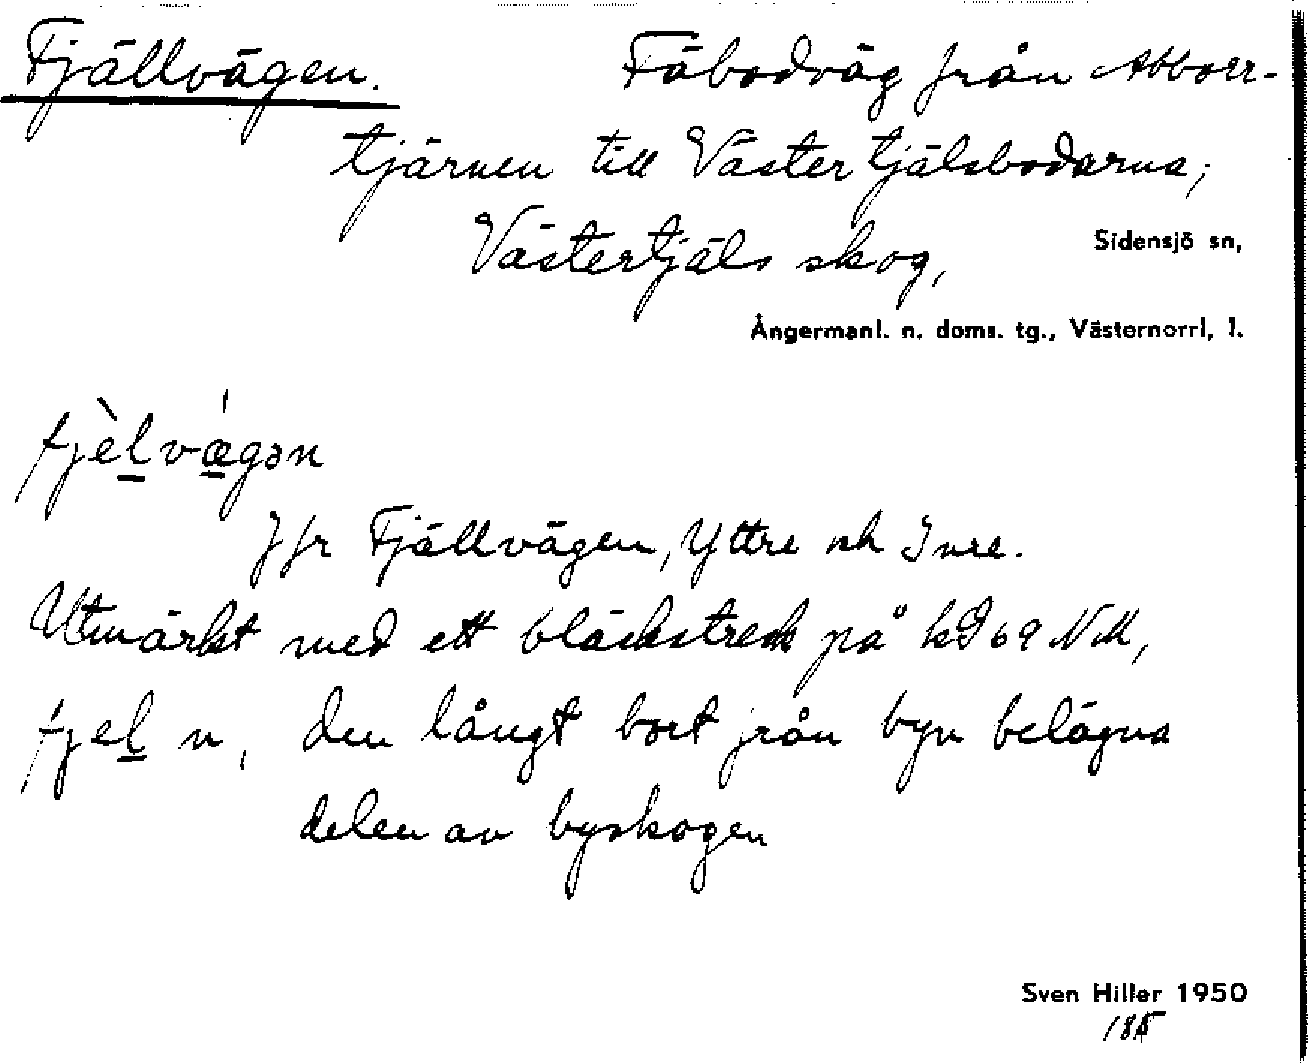 Fjällvägen. Fäbodväg från Abborr-
tjärnen till Västertjälsbodarna;
Västertjäls skog,
Sidensjö sn,
Ångermanl. n. doms. tg., Västernorrl. l.
fjèlvǽgən
Jfr Fjällvägen, Yttre och Inre.
Utmärkt med ett bläckstreck på
fjel n, den långt bort från byn belägna
delen av byskogen
Sven Hiller 1950